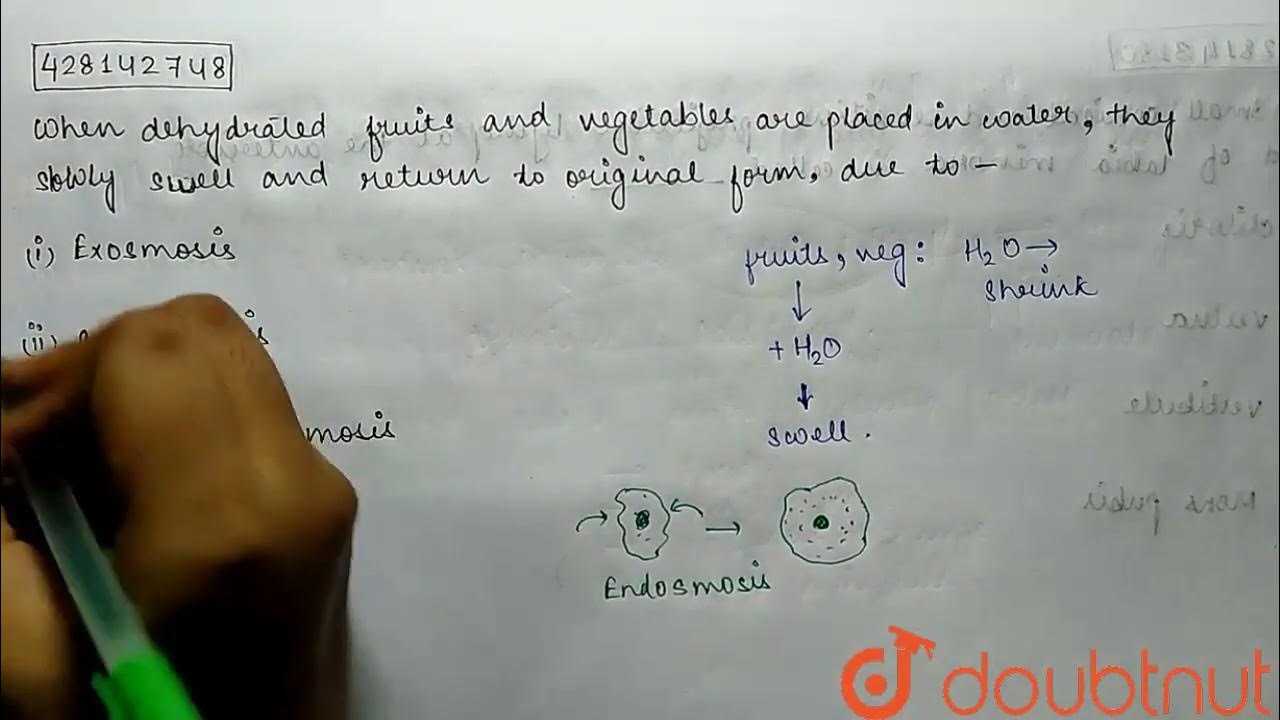 428142748
When dehydrated fruits and vegetables are placed in water, they
slowly swell and return to original form, due to –
(i) Exosmosis
(ii)
mosis
fruits, veg: H₂O →
shrink
↓
+ H₂O
↓
swell.
→
Endosmosis
doubtnut